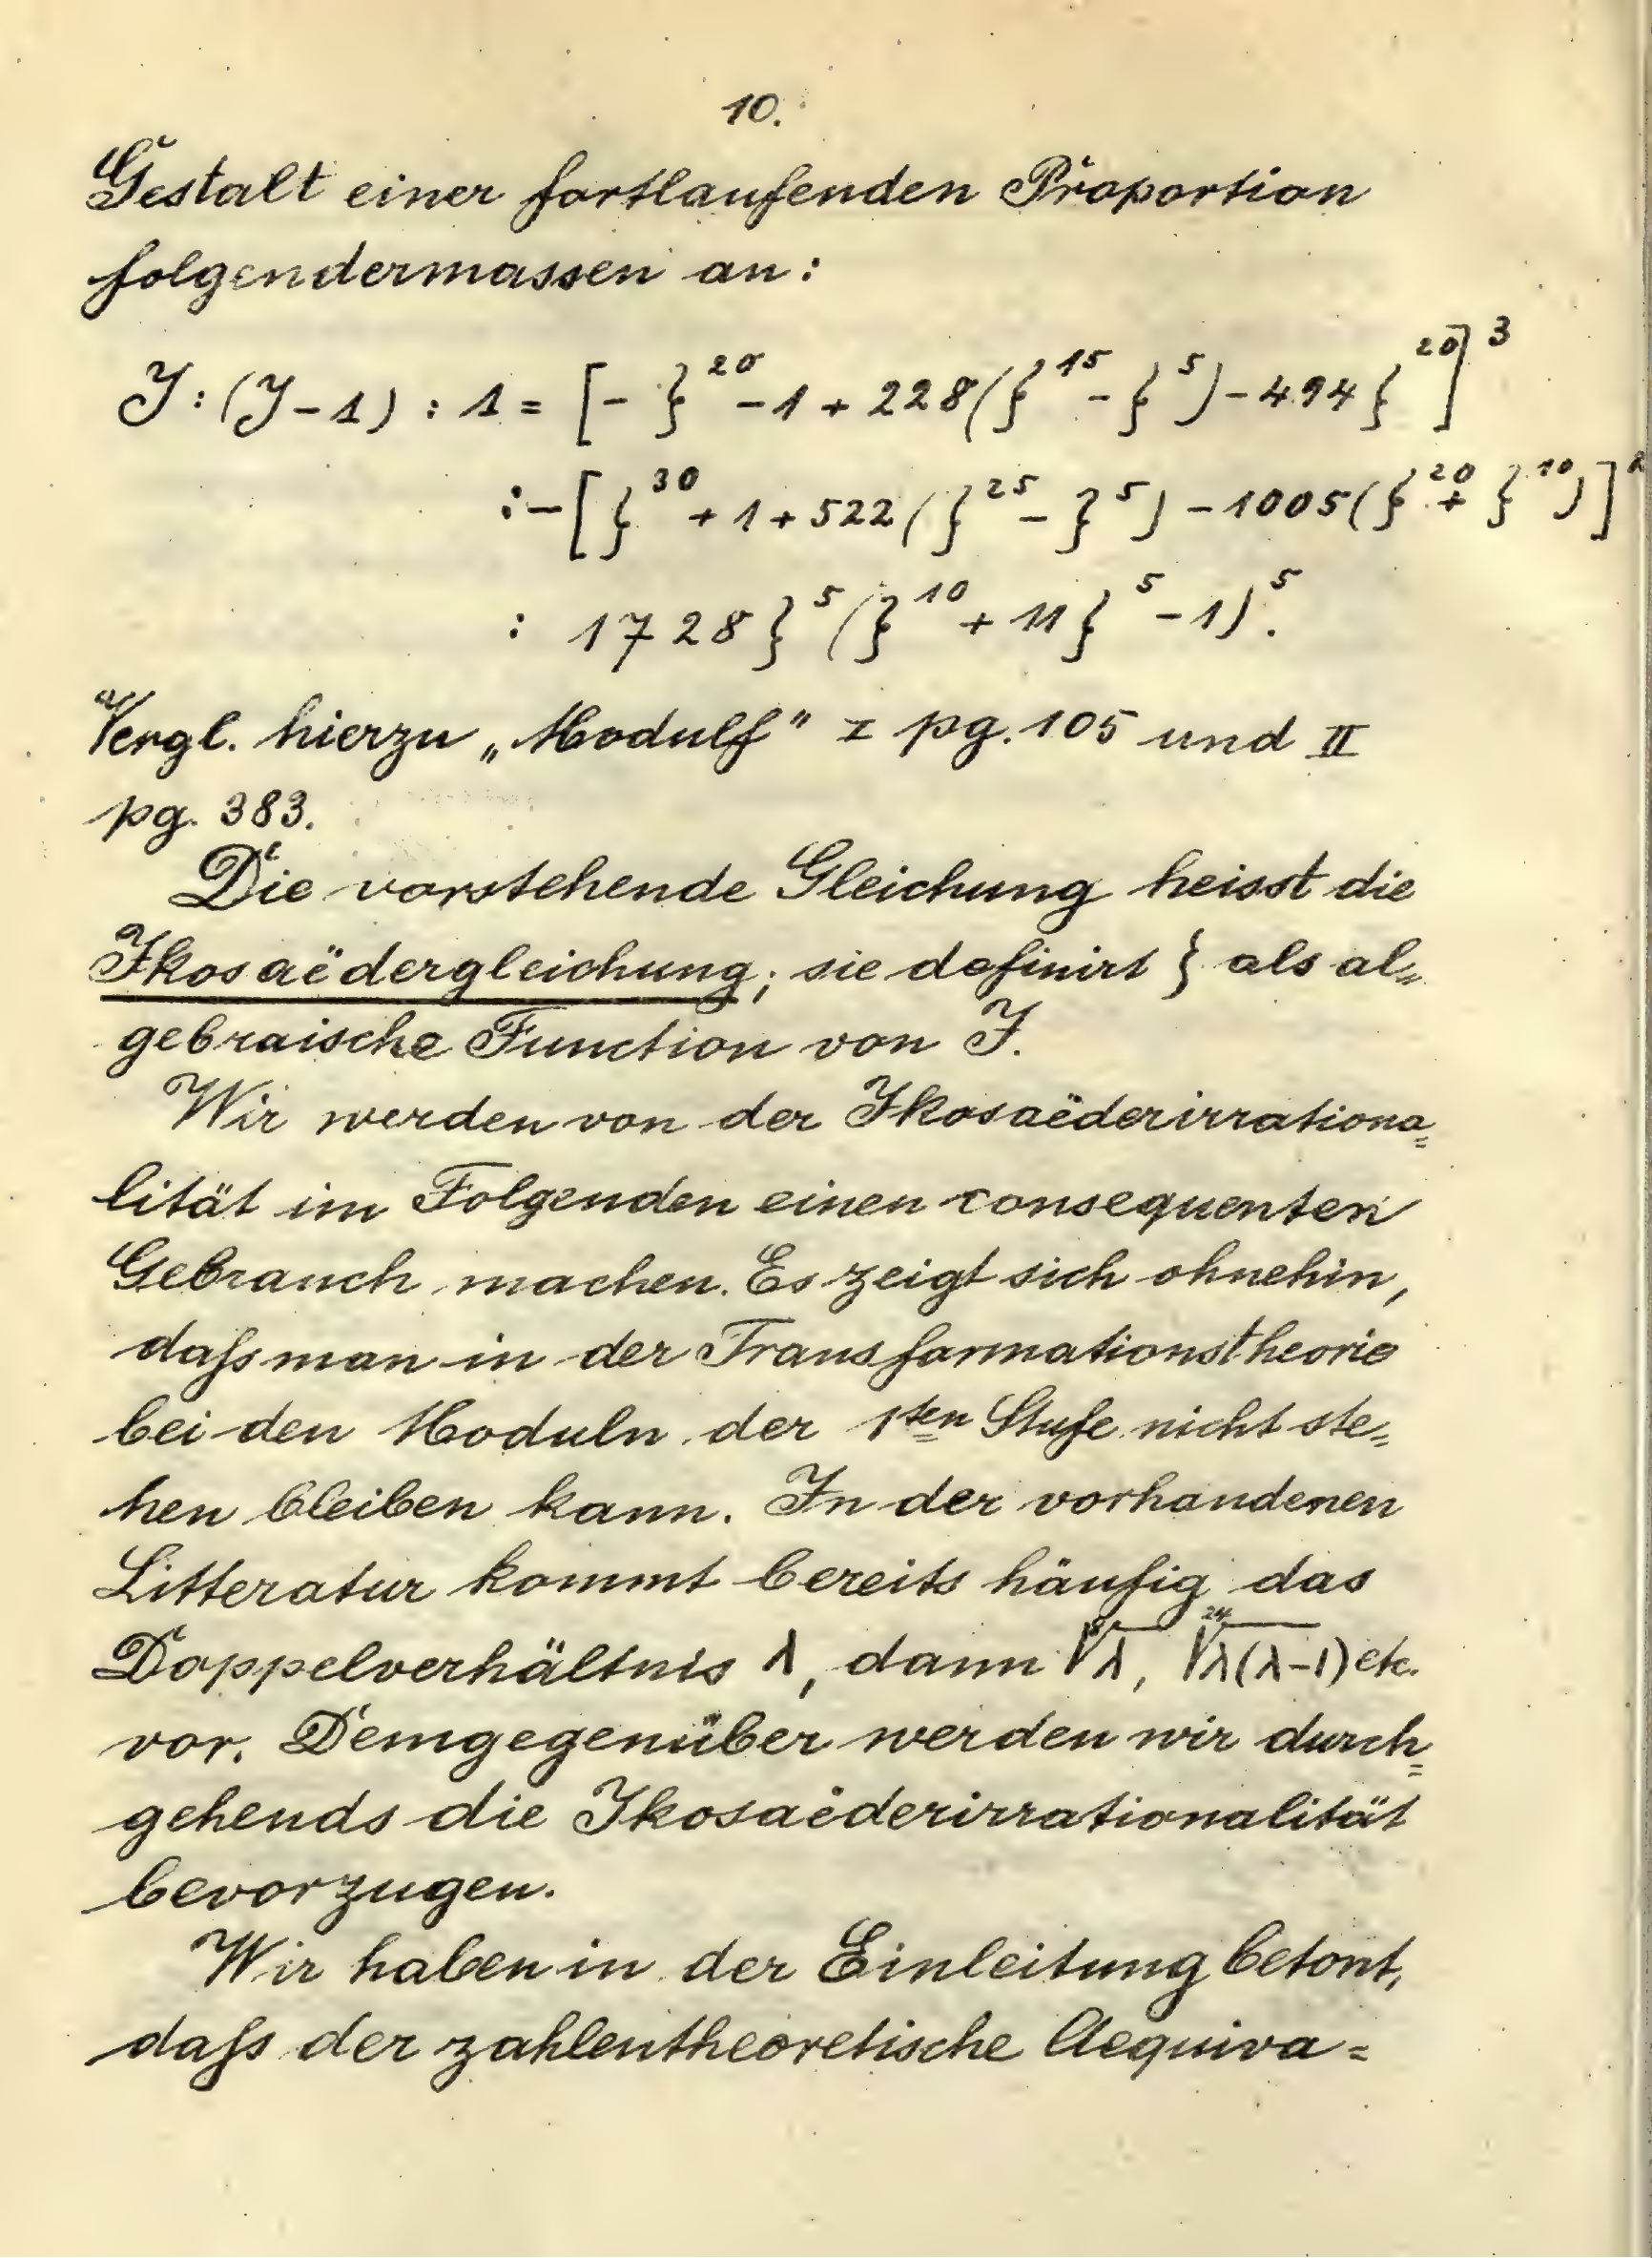 10.
Gestalt einer fortlaufenden Proportion
folgendermassen an:
J : (J - 1) : 1 = [- ζ^20 - 1 + 228 (ζ^15 - ζ^5) - 494 ζ^20]^3
: - [ζ^30 + 1 + 522 (ζ^25 - ζ^5) - 1005 (ζ^20 + ζ^10)]^2
: 1728 ζ^5 (ζ^10 + 11 ζ^5 - 1)^5.
Vergl. hierzu „Modulf" I pg. 105 und II
pg. 383.
Die vorstehende Gleichung heisst die
Ikosaëdergleichung; sie definirt ζ als al=
gebraische Function von J.
Wir werden von der Ikosaëderirrationa=
lität im Folgenden einen consequenten
Gebrauch machen. Es zeigt sich ohnehin,
daſs man in der Transformationstheorie
bei den Moduln der 1ten Stufe nicht ste=
hen bleiben kann. In der vorhandenen
Litteratur kommt bereits häufig das
Doppelverhältnis λ, dann ⁸√λ, ²⁴√λ(λ-1) etc.
vor. Demgegenüber werden wir durch=
gehends die Ikosaëderirrationalität
bevorzugen.
Wir haben in der Einleitung betont,
daſs der zahlentheoretische Aequiva=